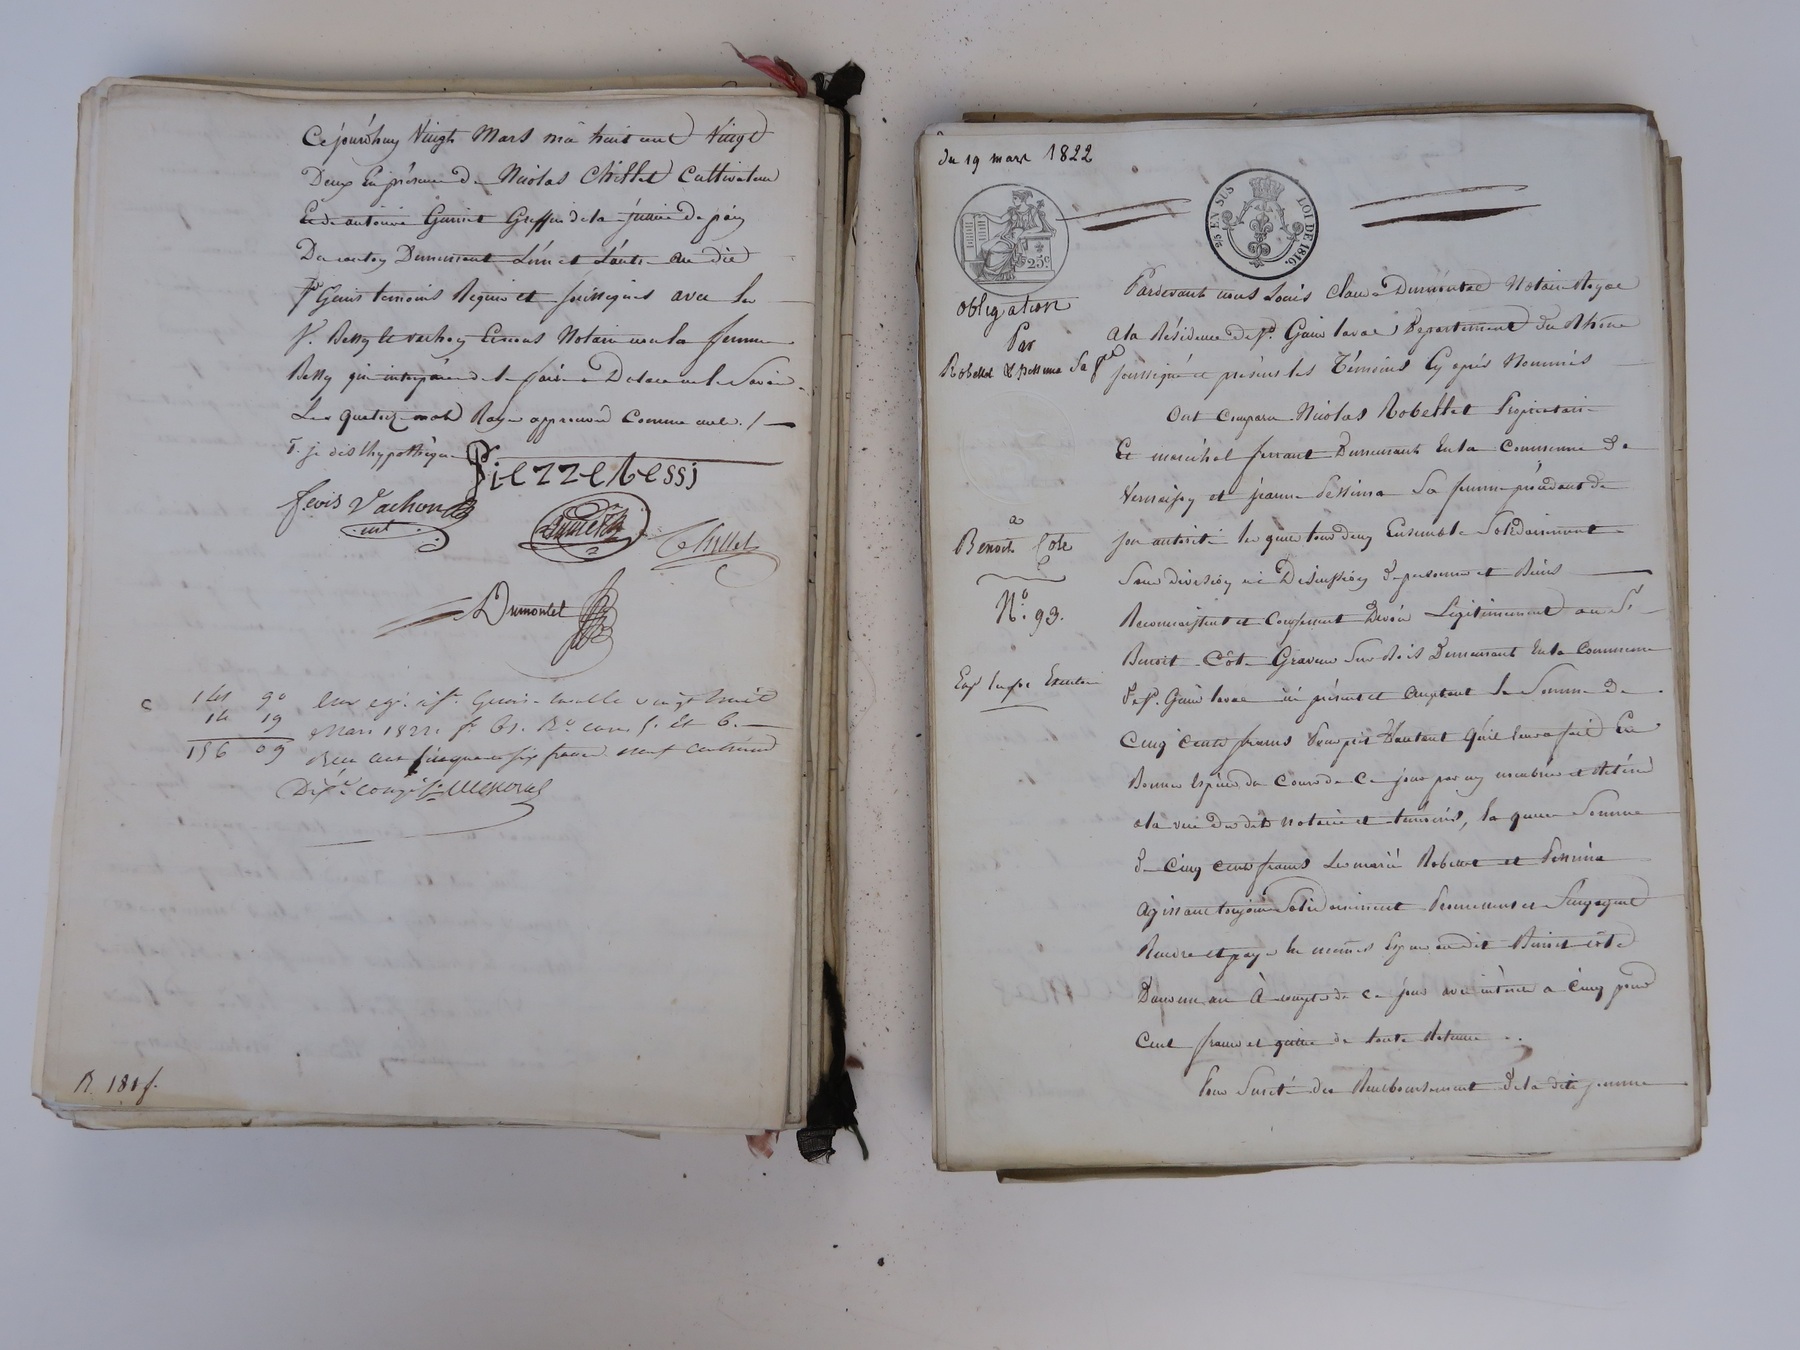 Cejourdhuy Vingt Mars mil huit cent Vingt
Deux En présence de Nicolas Chillet Cultivateur
Et de antoine Greffier de la justice de paix
Du canton Demeurant L'un et L'autre au dit
St Genis temoins Requis et soussignés avec les
St. Bessy et vachon Et nous Notaire non la femme
Bessy qui interpéllée de le faire a Déclaré ne le Savoir.
Les quatorze mots Rayés approuvés Comme nuls ./.
T. je dis lhypothèque
Piezzebessi
Vachon
Chillet
Dumontet
C 141 90
14 19
156 09
Enregé. à St. Genis-Lavalle vingt huit
Mars 1822. fo. Ro. cases 5. et 6.
Reçu cent cinquante six francs neuf centimes
Dixe. compris
R. 181 f.
du 19 mars 1822
25 c
25 EN SUS
LOI DE 1816.
Obligation
Par
Robellet & Pessima Sa fe
a
Benoit Côte
No. 93.
Pardevant nous Louis Claude Dumontet Notaire Royal
A la Résidence de St. Genis laval Département du Rhône
soussigné et présens les Témoins Cy après Nommés
Ont comparu Nicolas Robellet Propriétaire
Et maréchal ferrant Demeurant En la Commune de
Vernaison et jeanne Pessima Sa femme procédant de
son autorité les quels tous deux Ensemble Solidairement
Sans division ni Discussion de personnes et Biens
Reconnaissent et Confessent Devoir Légitimement au Sr.
Benoit Côte Graveur Sur Bois Demeurant En la Commune
De St. Genis laval ici présent et acceptant la Somme de
Cinq Cents francs Pour prêt D'autant qu'il leur a fait En
Bonnes Espèces du Cours de Ce jour par eux nombrées et Retirées
a la vue des dits notaire et temoins, la quelle Somme
de Cinq Cents francs Les mariés Robellet et Pessima
Agissant toujours Solidairement Promettent et S'engagent
Rendre et payer En mêmes Espèces au dit Benoit Côte
Dans un an À compter de Ce jour avec intérêts a Cinq pour
Cent francs et quitte de toute Retenue
Pour Sureté du Remboursement De la dite somme